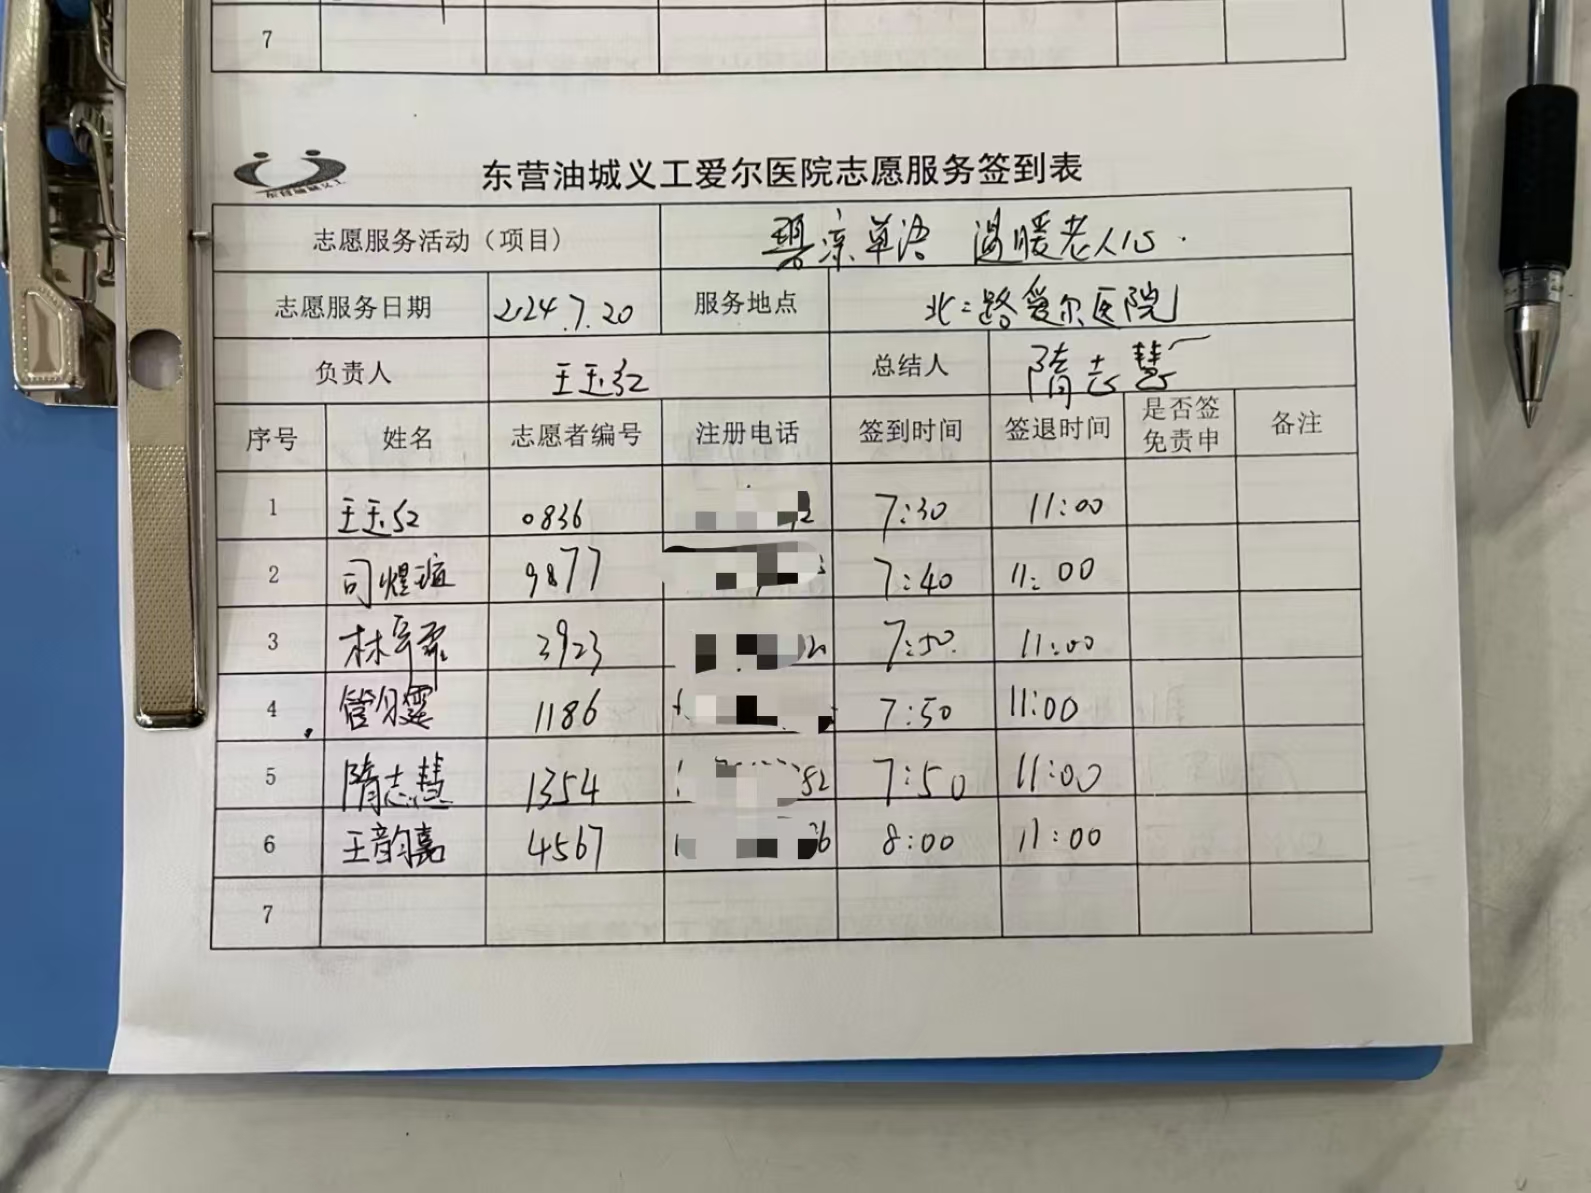 7
东营油城义工
东营油城义工爱尔医院志愿服务签到表
志愿服务活动（项目） 温暖老人心.
志愿服务日期 2024.7.20 服务地点 北二路爱尔医院
负责人 王玉红 总结人 隋志慧
序号 姓名 志愿者编号 注册电话 签到时间 签退时间 是否签免责申 备注
1 王玉红 0836 2 7:30 11:00
2 司煜瑄 9877 7:40 11:00
3 林 3923 7:50 11:00
4 管 1186 7:50 11:00
5 隋志慧 1354 82 7:50 11:00
6 王韵嘉 4567 1 6 8:00 11:00
7